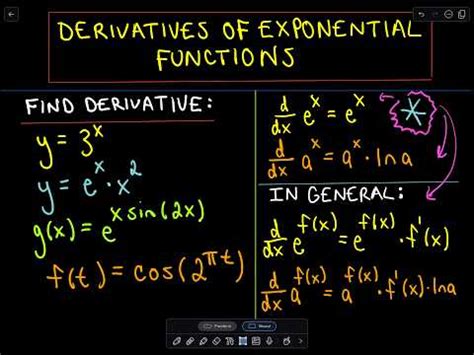 DERIVATIVES OF EXPONENTIAL
FUNCTIONS
FIND DERIVATIVE:
y = 3^x
y = e^x · x^2
g(x) = e^{x sin(2x)}
f(t) = cos(2^{πt})
d/dx e^x = e^x
d/dx a^x = a^x · ln a
IN GENERAL:
d/dx e^{f(x)} = e^{f(x)} · f'(x)
d/dx a^{f(x)} = a^{f(x)} · f'(x) · ln a